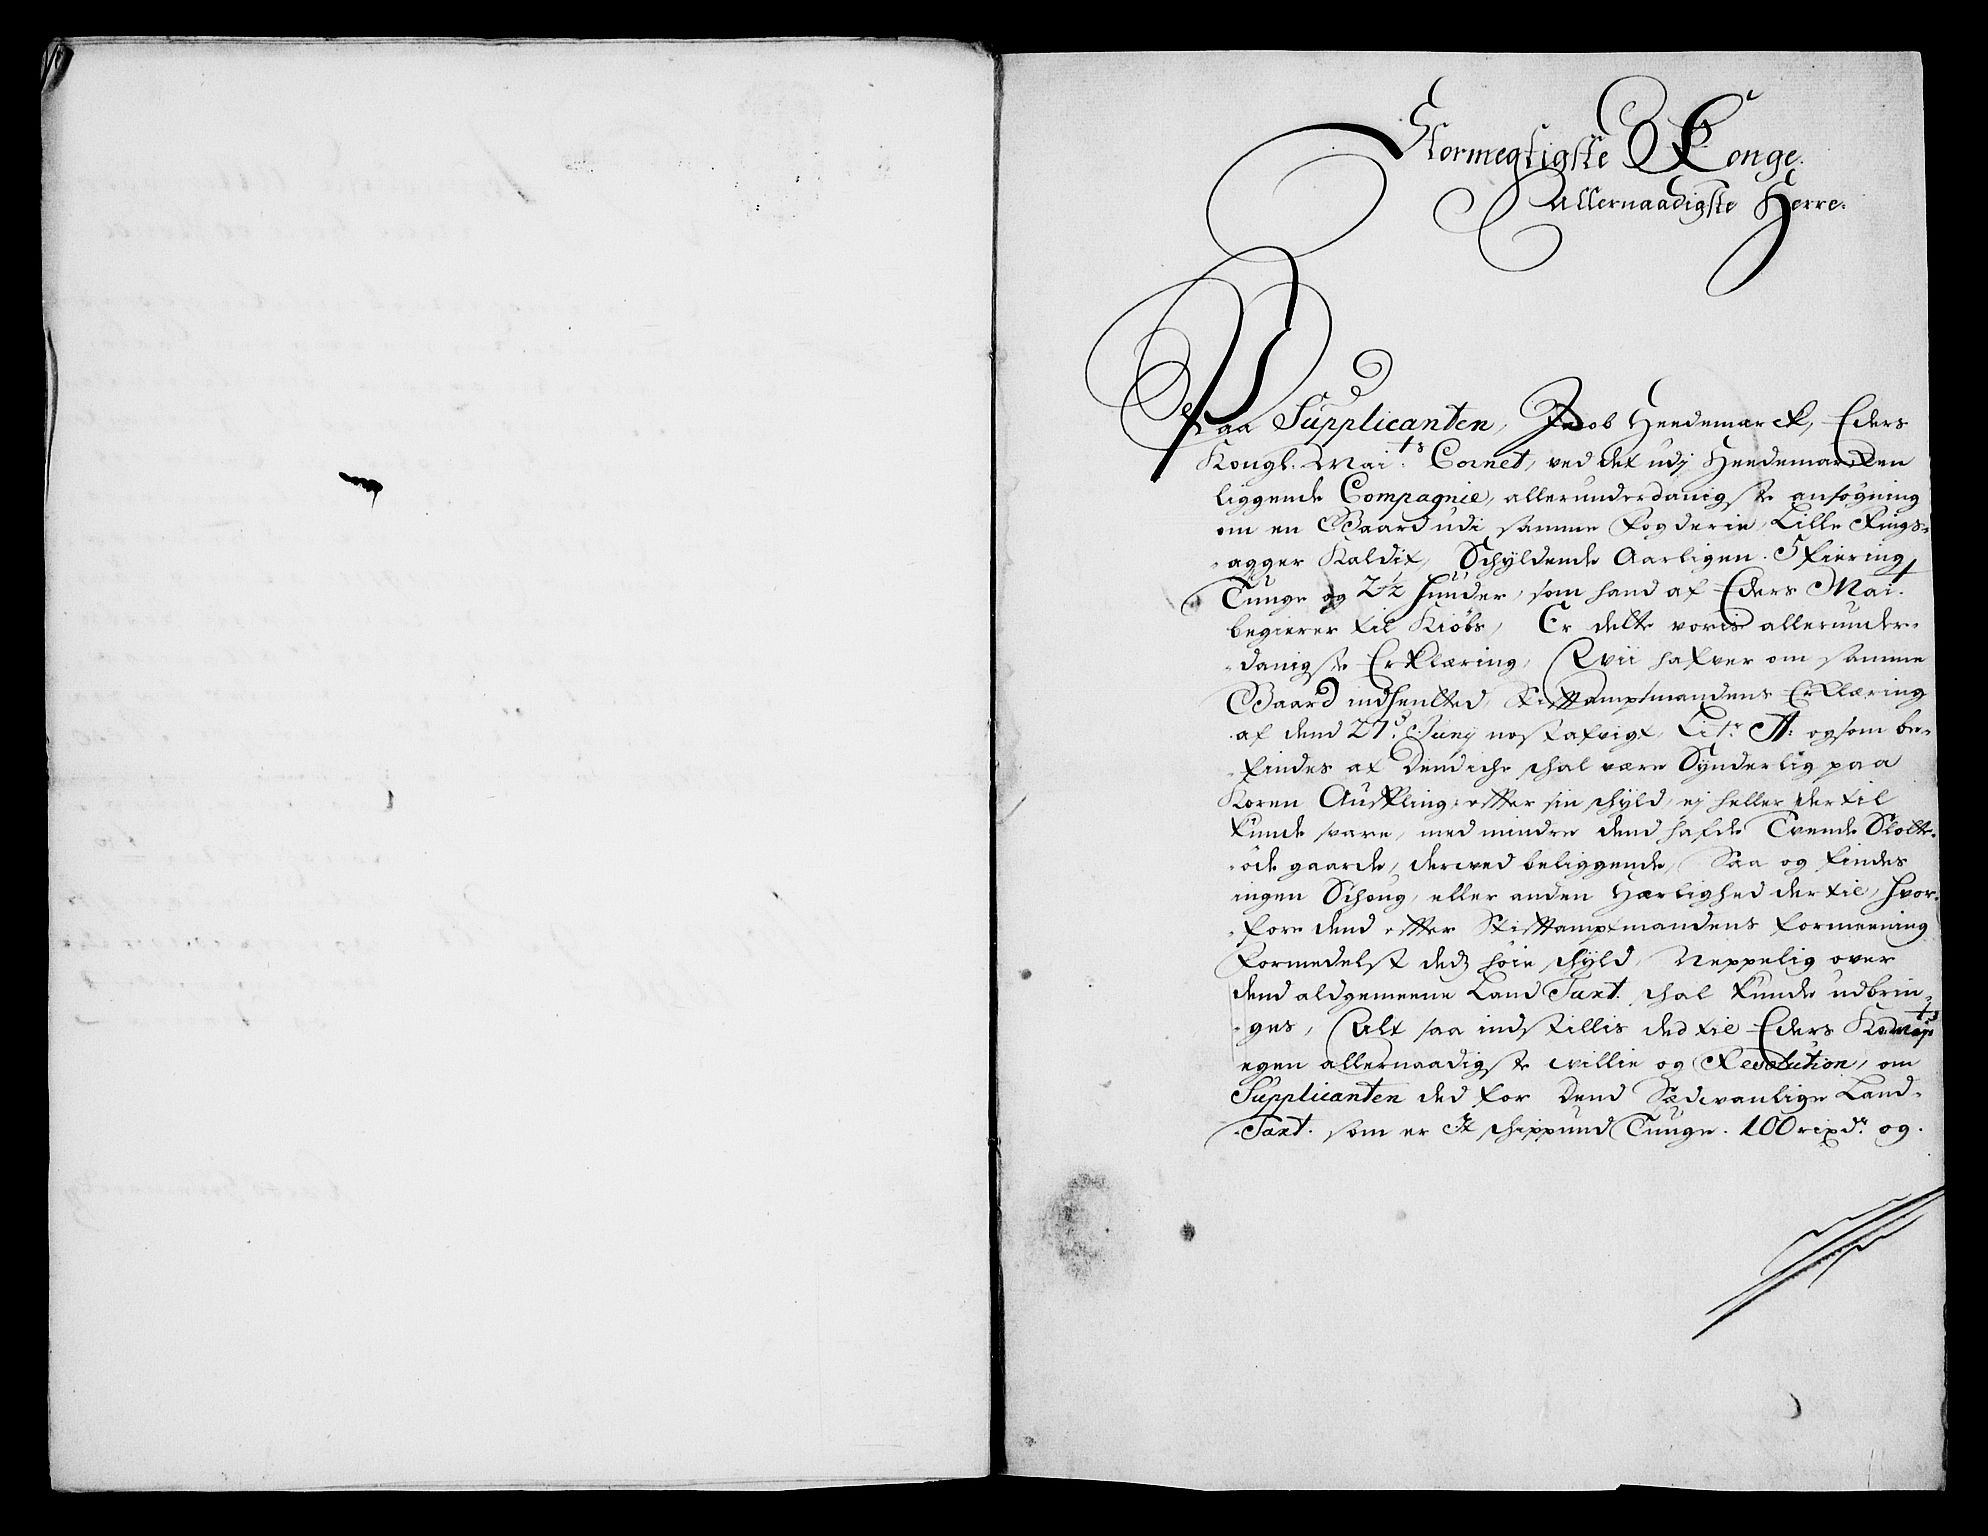 Stormegtigste Konge.
Allernaadigste Herre.
Paa Supplicanten, Jacob Heedemarck, Eders
Kongl. Mai.ts Cornet, ved det udj Heedemarcken
liggende Compagnie, allerunderdanigste ansøgning
om en Gaard udi samme fogderie, Lille Rings-
agger kaldit, Schyldende Aarligen 5 fiering
Tunge og 2½ huuder, som hand af Eders Mai.t
begierer til Kiøbs, Er dette voris allerunder-
danigste Erklæring, Wii hafver om samme
Gaard indhented, Stifftamptmandens Erklæring
af dend 27.d Junij nestafvigt, Lit.r A: og som be-
findes at Dend iche schal være Synderlig paa
Koren Aufling, effter sin schyld, ej heller dertil
kunde svare, med mindre dend hafde Tvende Slotte-
øde gaarde, derved beliggende, Saa og findes
ingen Schoug, eller anden Herlighed dertil, hvor-
fore dend effter Stifftamptmandens formeening
formedelst deds høie schyld, Neppelig over
dend aldgemeene Land Taxt. schal kunde udbrin-
ges, Alt saa indstillis ded til Eders Ko: May.ts
egen allernaadigste villie og Resolution, om
Supplicanten ded for Dend Sædvanlige Land-
Taxt. som er schippund Tunge. 100 rixdr. og.